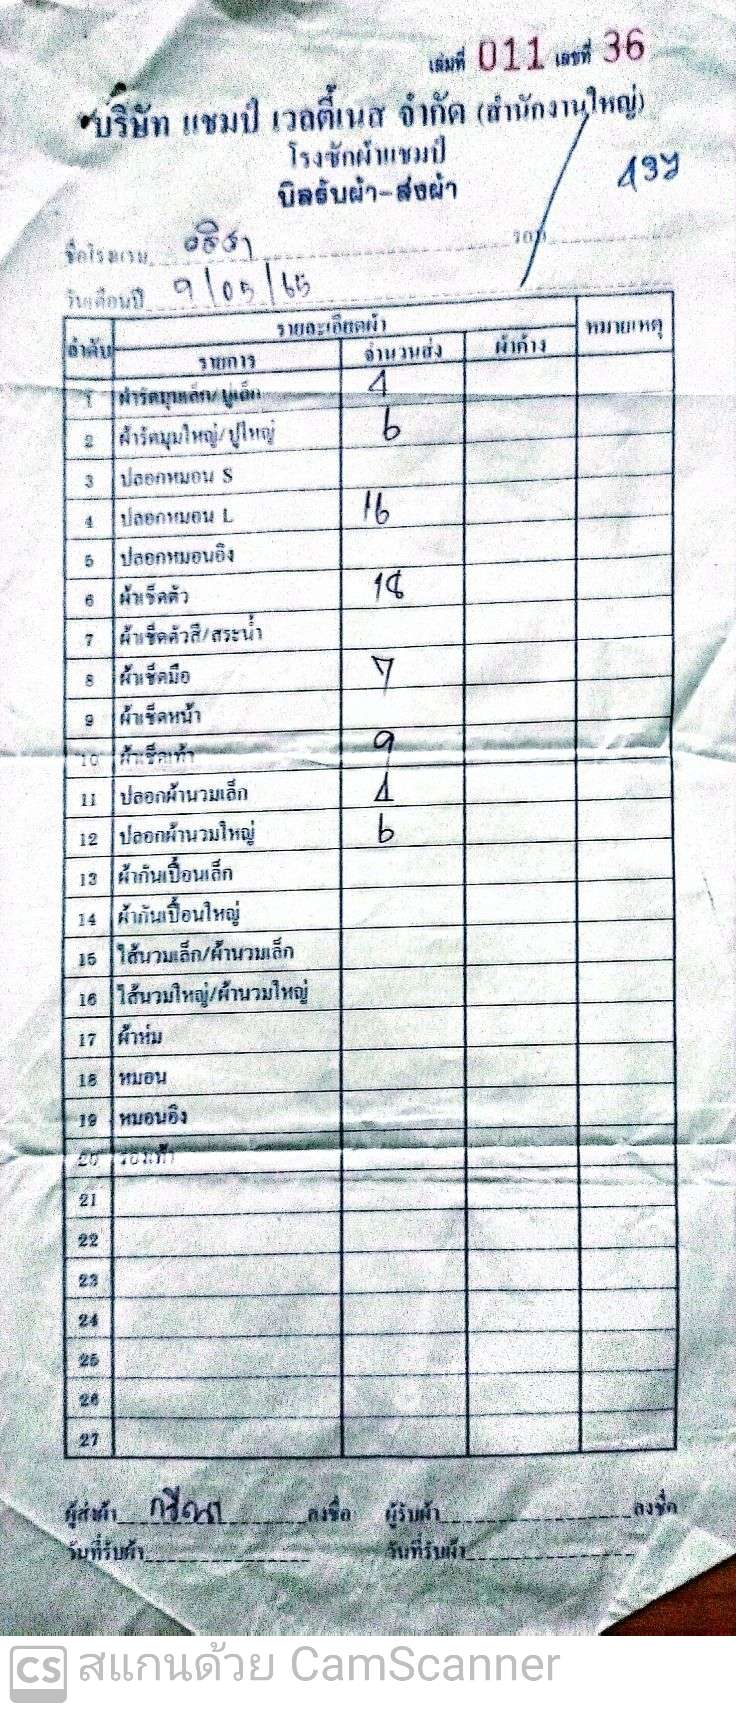 เล่มที่ 011 เลขที่ 36
บริษัท แชมป์ เวลตี้เนส จำกัด (สำนักงานใหญ่)
โรงซักผ้าแชมป์
บิลรับผ้า-ส่งผ้า
ชื่อโรงแรม อธิชา รอบ
วันเดือนปี 9/05/65
ลำดับ รายละเอียดผ้า หมายเหตุ
รายการ จำนวนส่ง ผ้าค้าง
1 ผ้ารัดมุมเล็ก/ปูเล็ก 4
2 ผ้ารัดมุมใหญ่/ปูใหญ่ 6
3 ปลอกหมอน S
4 ปลอกหมอน L 16
5 ปลอกหมอนอิง
6 ผ้าเช็ดตัว 18
7 ผ้าเช็ดตัวสี/สระน้ำ
8 ผ้าเช็ดมือ 7
9 ผ้าเช็ดหน้า
10 ผ้าเช็ดเท้า 9
11 ปลอกผ้านวมเล็ก 4
12 ปลอกผ้านวมใหญ่ 6
13 ผ้ากันเปื้อนเล็ก
14 ผ้ากันเปื้อนใหญ่
15 ไส้นวมเล็ก/ผ้านวมเล็ก
16 ไส้นวมใหญ่/ผ้านวมใหญ่
17 ผ้าห่ม
18 หมอน
19 หมอนอิง
20 รองเท้า
21
22
23
24
25
26
27
ผู้ส่งผ้า ลงชื่อ ผู้รับผ้า ลงชื่อ
วันที่รับผ้า วันที่รับผ้า
CS สแกนด้วย CamScanner